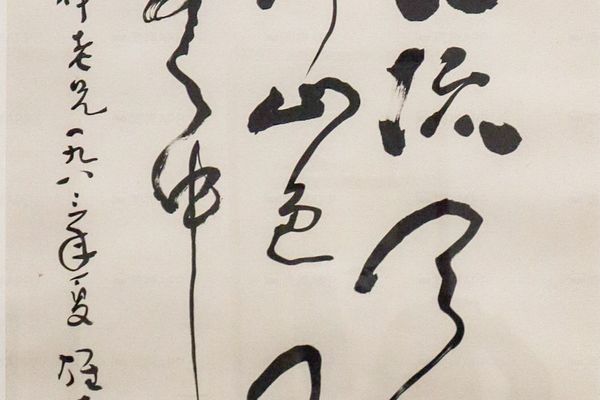 流天
山色
中
老兄一九八三年夏雄